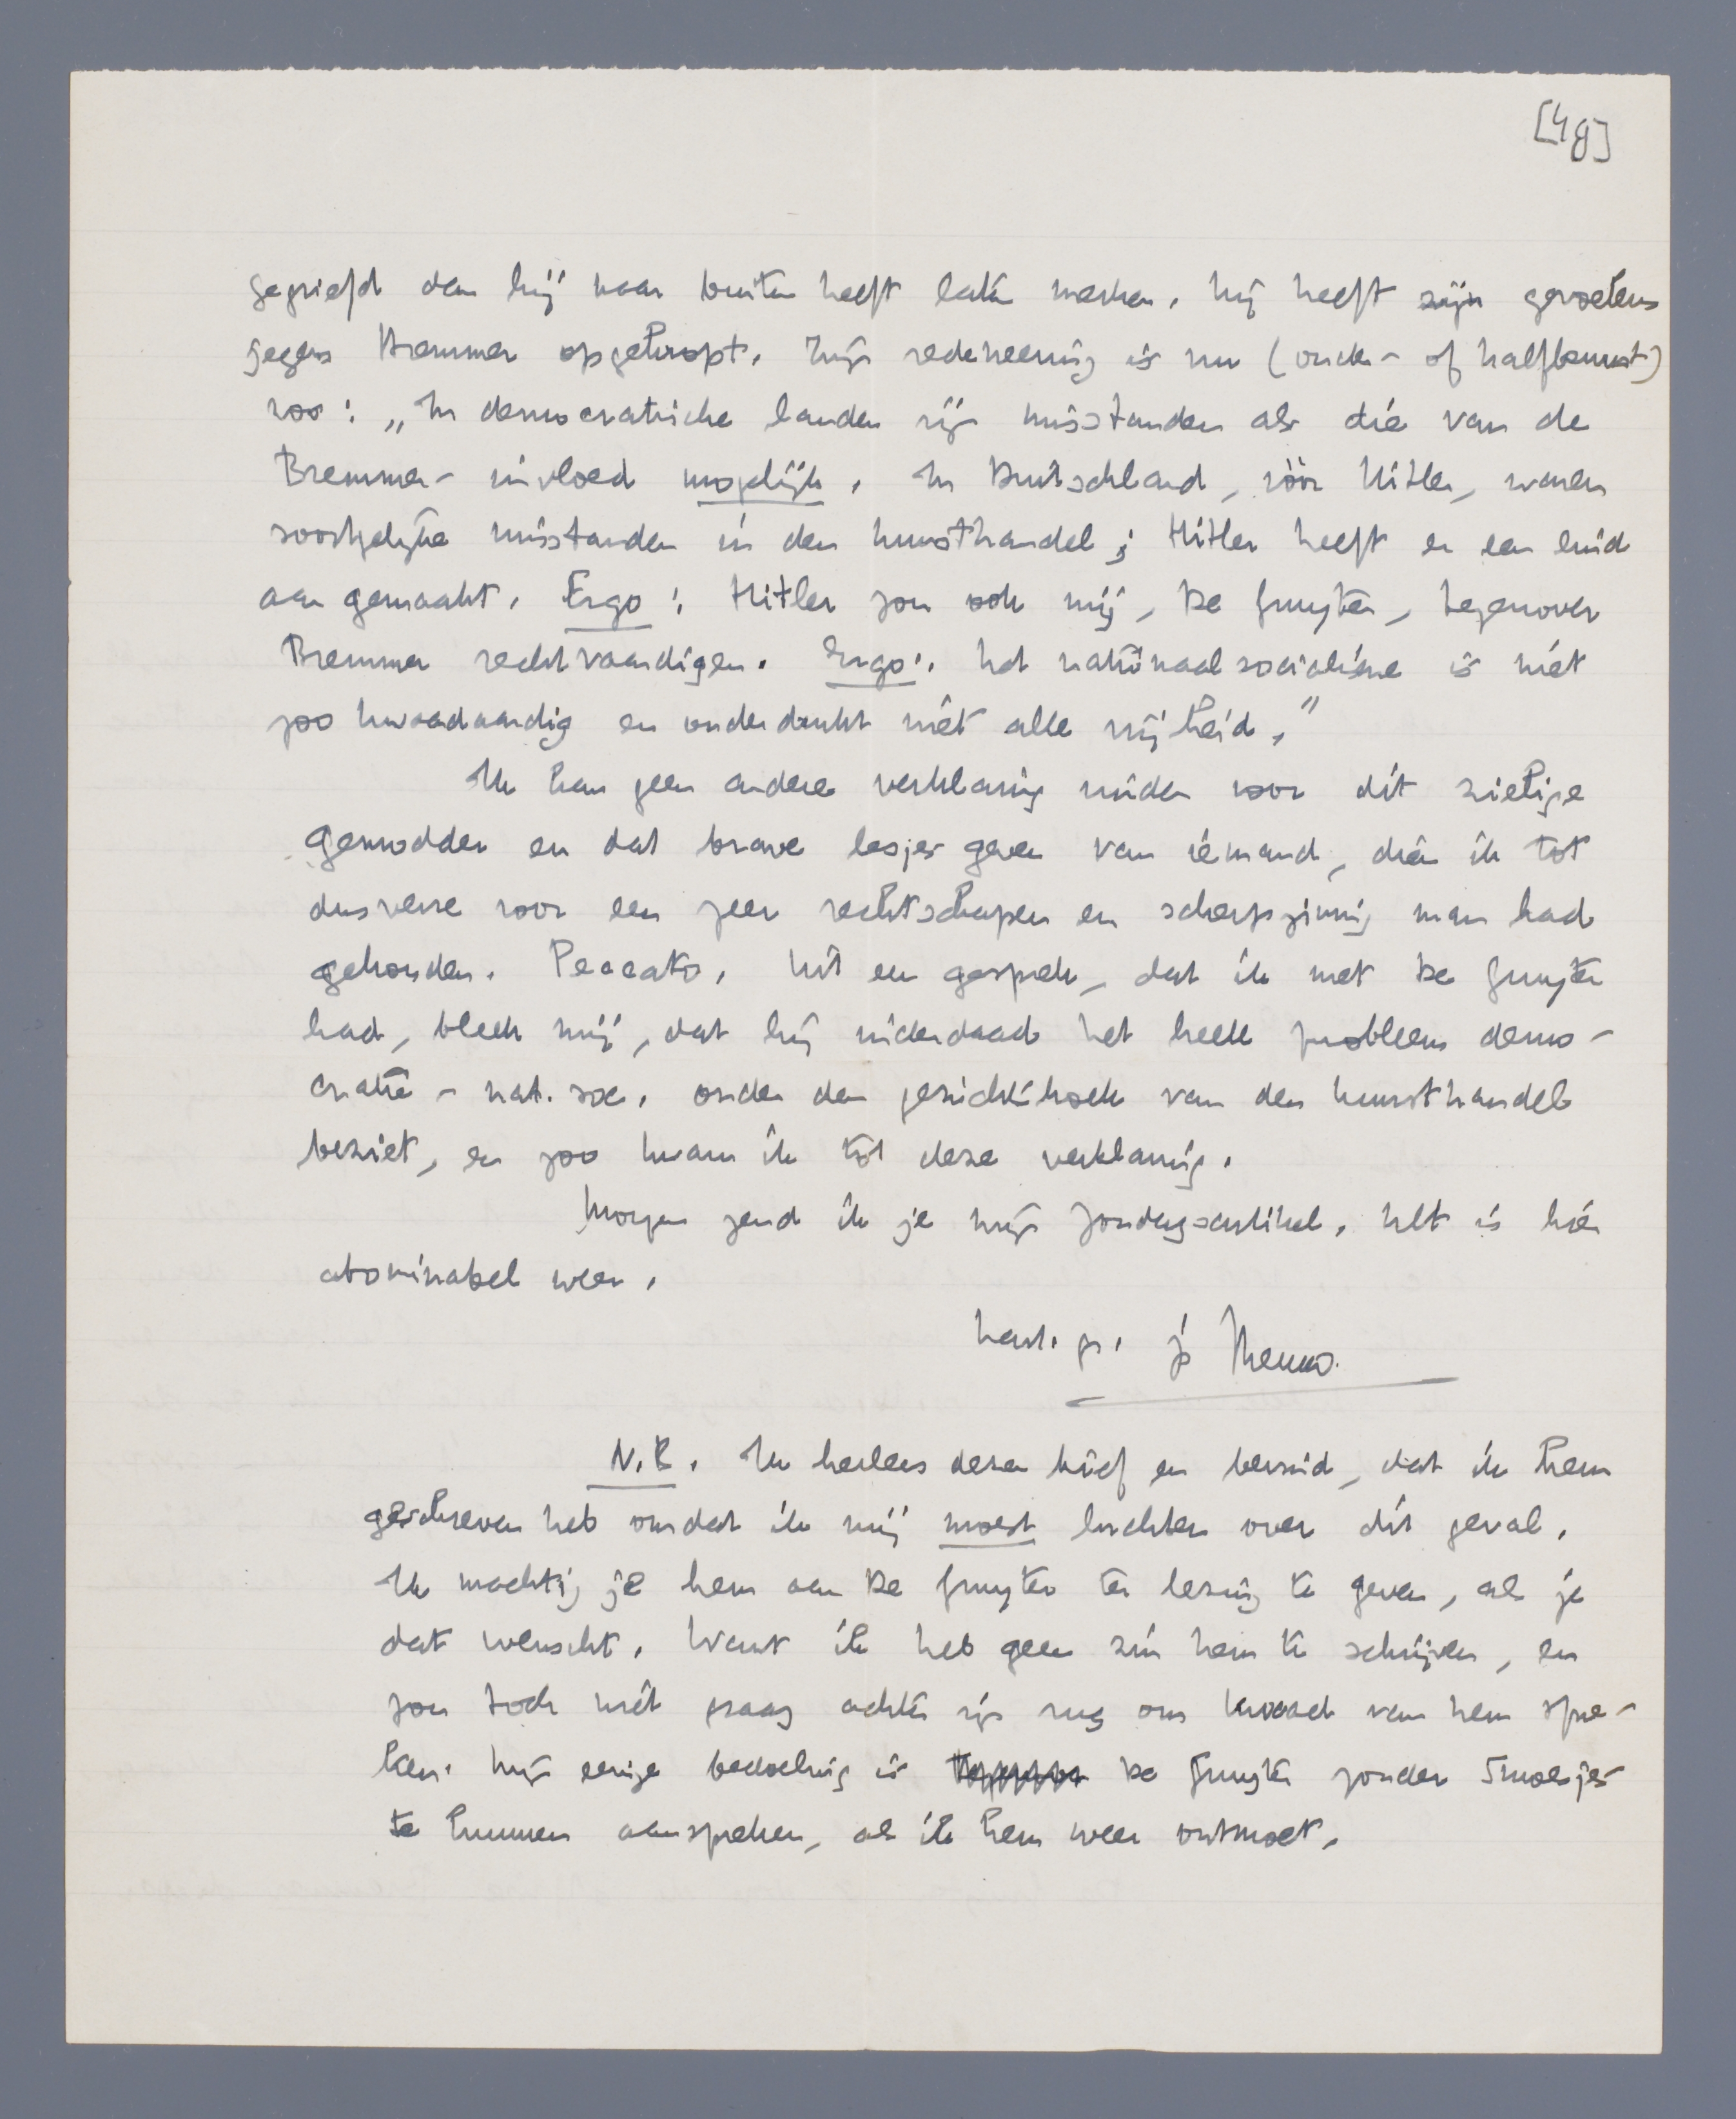 [4g]
gegriefd dan hij naar buiten heeft laten merken, hij heeft zijn gevoelens
jegens Bremmer opgekropt. Zijn redeneering is nu (onder- of halfbewust)
zoo: „In democratische landen zijn misstanden als die van de
Bremmer-invloed mogelijk. In Duitschland, vóór Hitler, waren
soortgelijke misstanden in den kunsthandel; Hitler heeft er een eind
aan gemaakt. Ergo: Hitler zou ook mij, De Gruyter, tegenover
Bremmer rechtvaardigen. Ergo: het nationaalsocialisme is niet
zoo kwaadaardig en onderdrukt niet alle vrijheid."
Ik kan geen andere verklaring vinden voor dit zielige
gemodder en dat brave lesjes geven van iemand, dien ik tot
dusverre voor een zeer rechtschapen en scherpzinnig man had
gehouden. Peccato. Uit een gesprek, dat ik met De Gruyter
had, bleek mij, dat hij inderdaad het heele probleem demo-
cratie - nat. soc. onder den gezichtshoek van den kunsthandel
beziet, en zoo kwam ik tot deze verklaring.
Morgen zend ik je mijn Zondagsartikel. Het is hier
abominabel weer.
hart. gr. je Menno.
N.B. Ik herlees dezen brief en bevind, dat ik hem
geschreven heb omdat ik mij moest luchten over dit geval.
Ik machtig je hem aan De Gruyter ter lezing te geven, als je
dat wenscht. Want ik heb geen zin hem te schrijven, en
zou toch niet graag achter zijn rug om kwaad van hem spre-
ken. Mijn eenige bedoeling is De Gruyter zonder smoesjes
te kunnen aanspreken, als ik hem weer ontmoet.